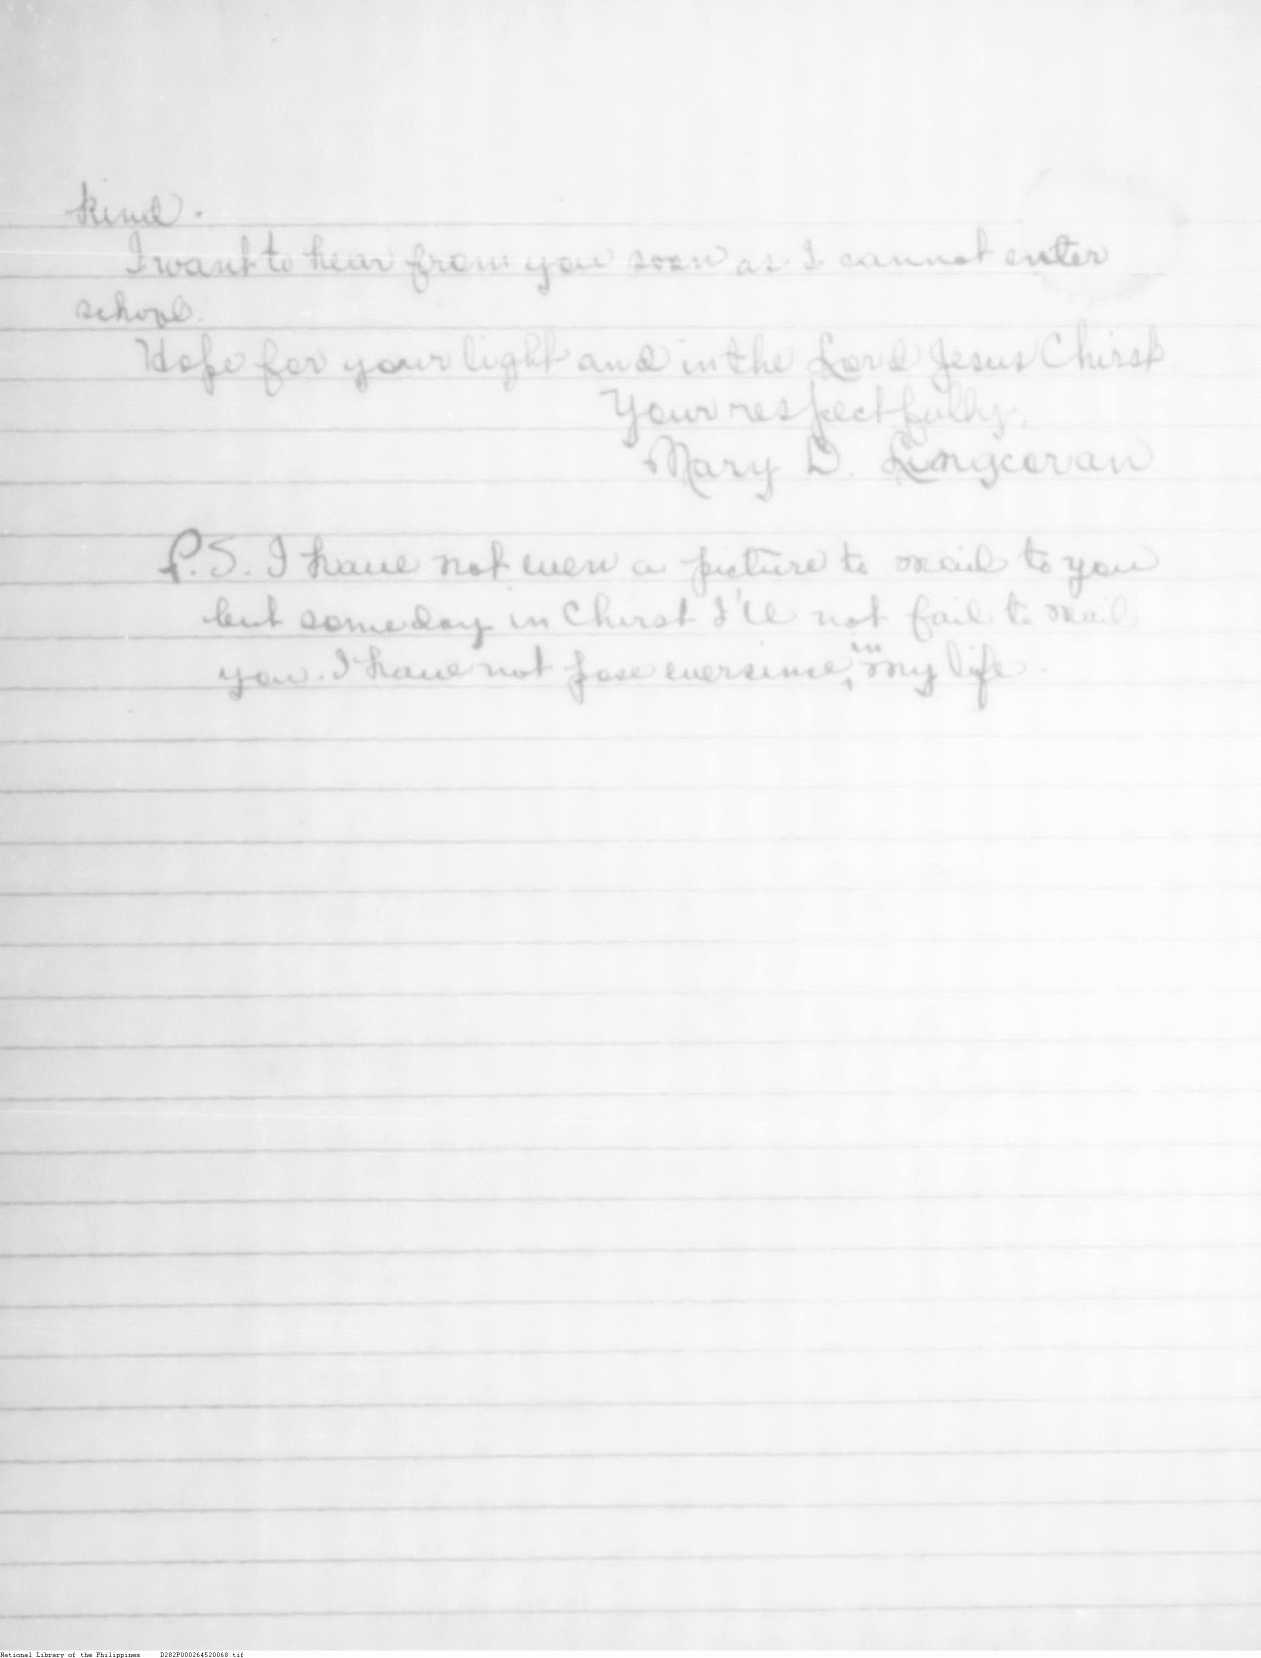 kind.
I want to hear from you soon as I cannot enter
school.
Hope for your light and in the Lord Jesus Chirst
Your respectfully,
Mary D.
P.S. I have not even a picture to mail to you
but someday in Chirst I'll not fail to mail
you. I have not pose eversince, in my life.
National Library of the Philippines D282P000264520068.tif